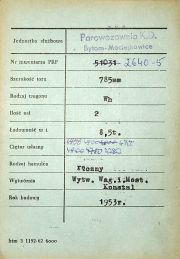 Jednostka służbowa
P.K.P.
Parowozownia K.D.
Bytom-Maciejkowice
Nr inwentarza PKP 51031 2640-5
Szerokość toru 785mm
Rodzaj wagonu Wh
Ilość osi 2
Ładowność w t. 8,5t.
Ciężar własny
Rodzaj hamulca ręczny
Wytwórnia Wytw. Wag. i Most.
Konstal
Rok budowy 1953r.